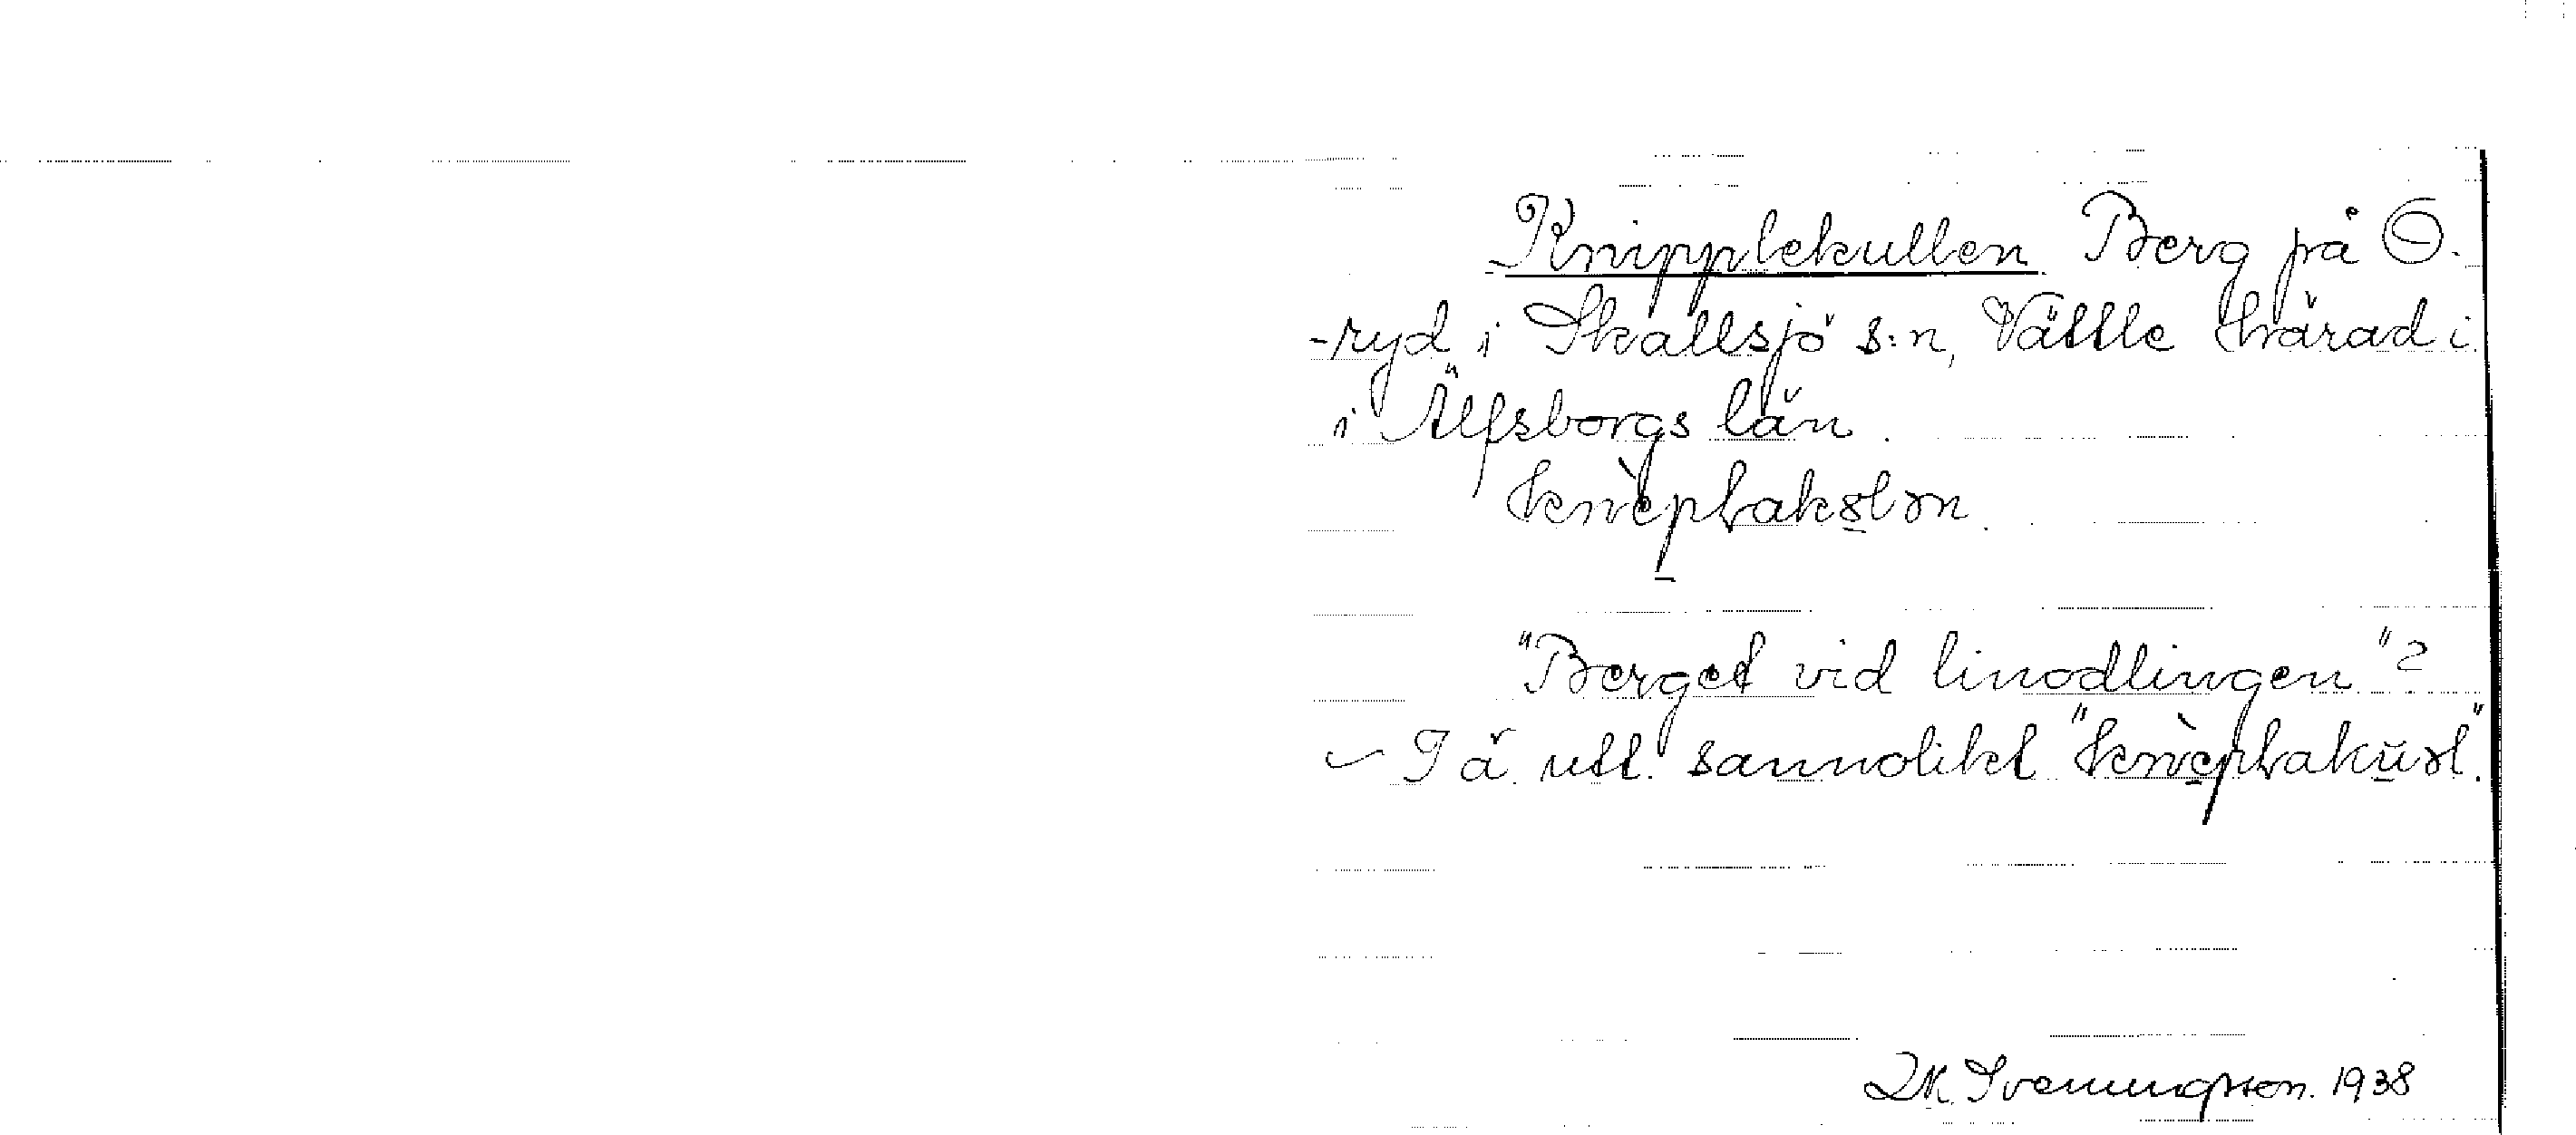 Knipplekullen Berg på O.
-ryd i Skallsjö s:n, Vättle härad i
i Älfsborgs län.
knèplakslɘn.
"Berget vid linodlingen"?
Iä utt. sannolikt "knèplakŭɘl".
Svenningsson. 1938